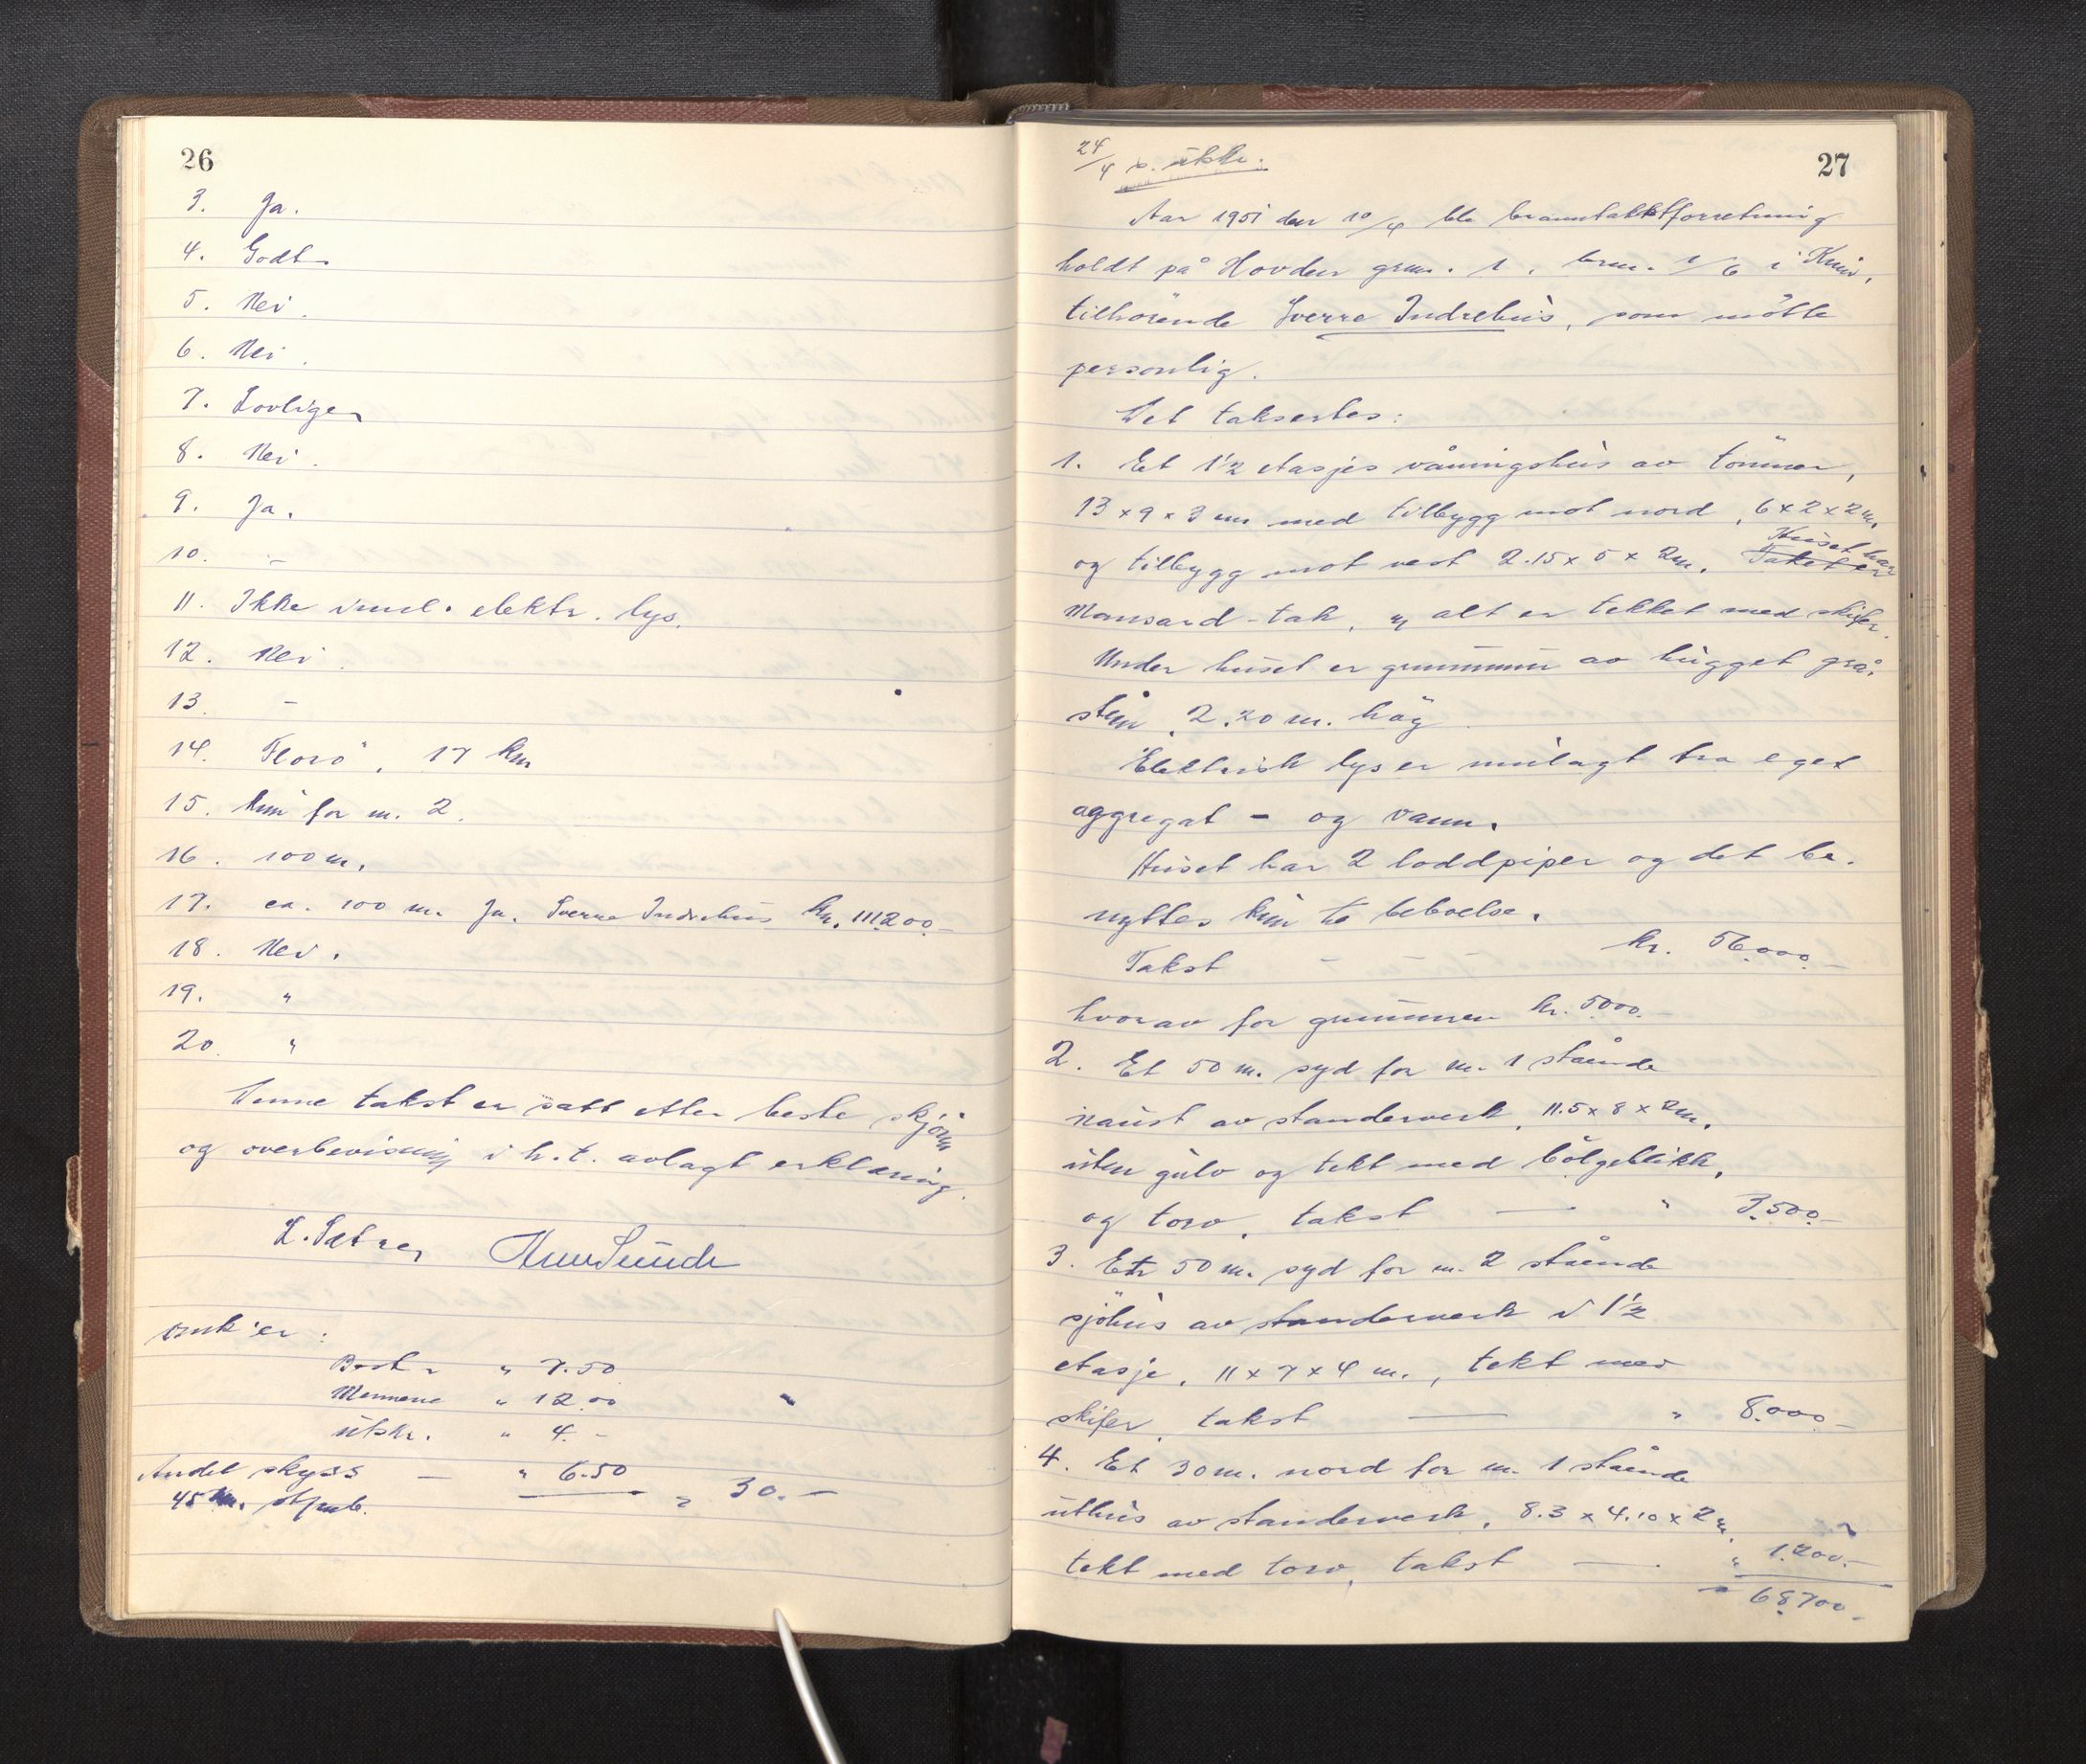 26
3. Ja.
4. Godt
5. Nei.
6. Nei.
7. Lovlige
8. Nei.
9. Ja.
10. -
11. Ikke innl. elektr. lys.
12. Nei.
13. -
14. Florö, 17 km
15. Kun for m. 2.
16. 100 m.
17. ca. 100 m. Ja. Sverre Indrehus kr. 111200.-
18. Nei.
19. "
20. "
Denne takst er satt etter beste skjönn
og overbevisning i h.t. avlagt erklæring.
L. Sætre,
omk'er:
Best. " 7.50
Mennene " 12.00
utskr. " 4.-
Andel skyss — " 6.50 = 30.-
45 km.
27
24/4 utskr.
Aar 1951 den 10/4 ble branntakstforretning
holdt på Hovden grnr. 1, brnr. 1/6 i Kinn,
tilhörende Sverre Indrehus, som mötte
personlig.
Det taksertes:
1. Et 1 1/2 etasjes våningshus av tömmer,
13 x 9 x 3 m med tilbygg mot nord, 6 x 2 x 2 m,
og tilbygg mot vest 2.15 x 5 x 2 m. Taket er Huset har
Mansard-tak, og alt er tekket med skifer.
Under huset er grunnmur av hugget grå-
stein, 2.20 m. höy.
Elektrisk lys er innlagt fra eget
aggregat - og vann.
Huset har 2 loddpiper og det be-
nyttes kun te beboelse.
Takst - - - kr. 56.000.-
hvorav for grunnmuren kr. 5000.-
2. Et 50 m. syd for m. 1 stående
naust av standerverk, 11.5 x 8 x 2 m,
uten gulv og tekt med bölgeblikk,
og torv, takst — " 3.500.-
3. Et 50 m. syd for m. 2 stående
sjöhus av standerverk i 1 1/2
etasje, 11 x 7 x 4 m., tekt med
skifer, takst — " 8.000.-
4. Et 30 m. nord for m. 1 stående
uthus av standerverk, 8.3 x 4.10 x 2 m,
tekt med torv, takst — " 1.200.-
= 68.700.-